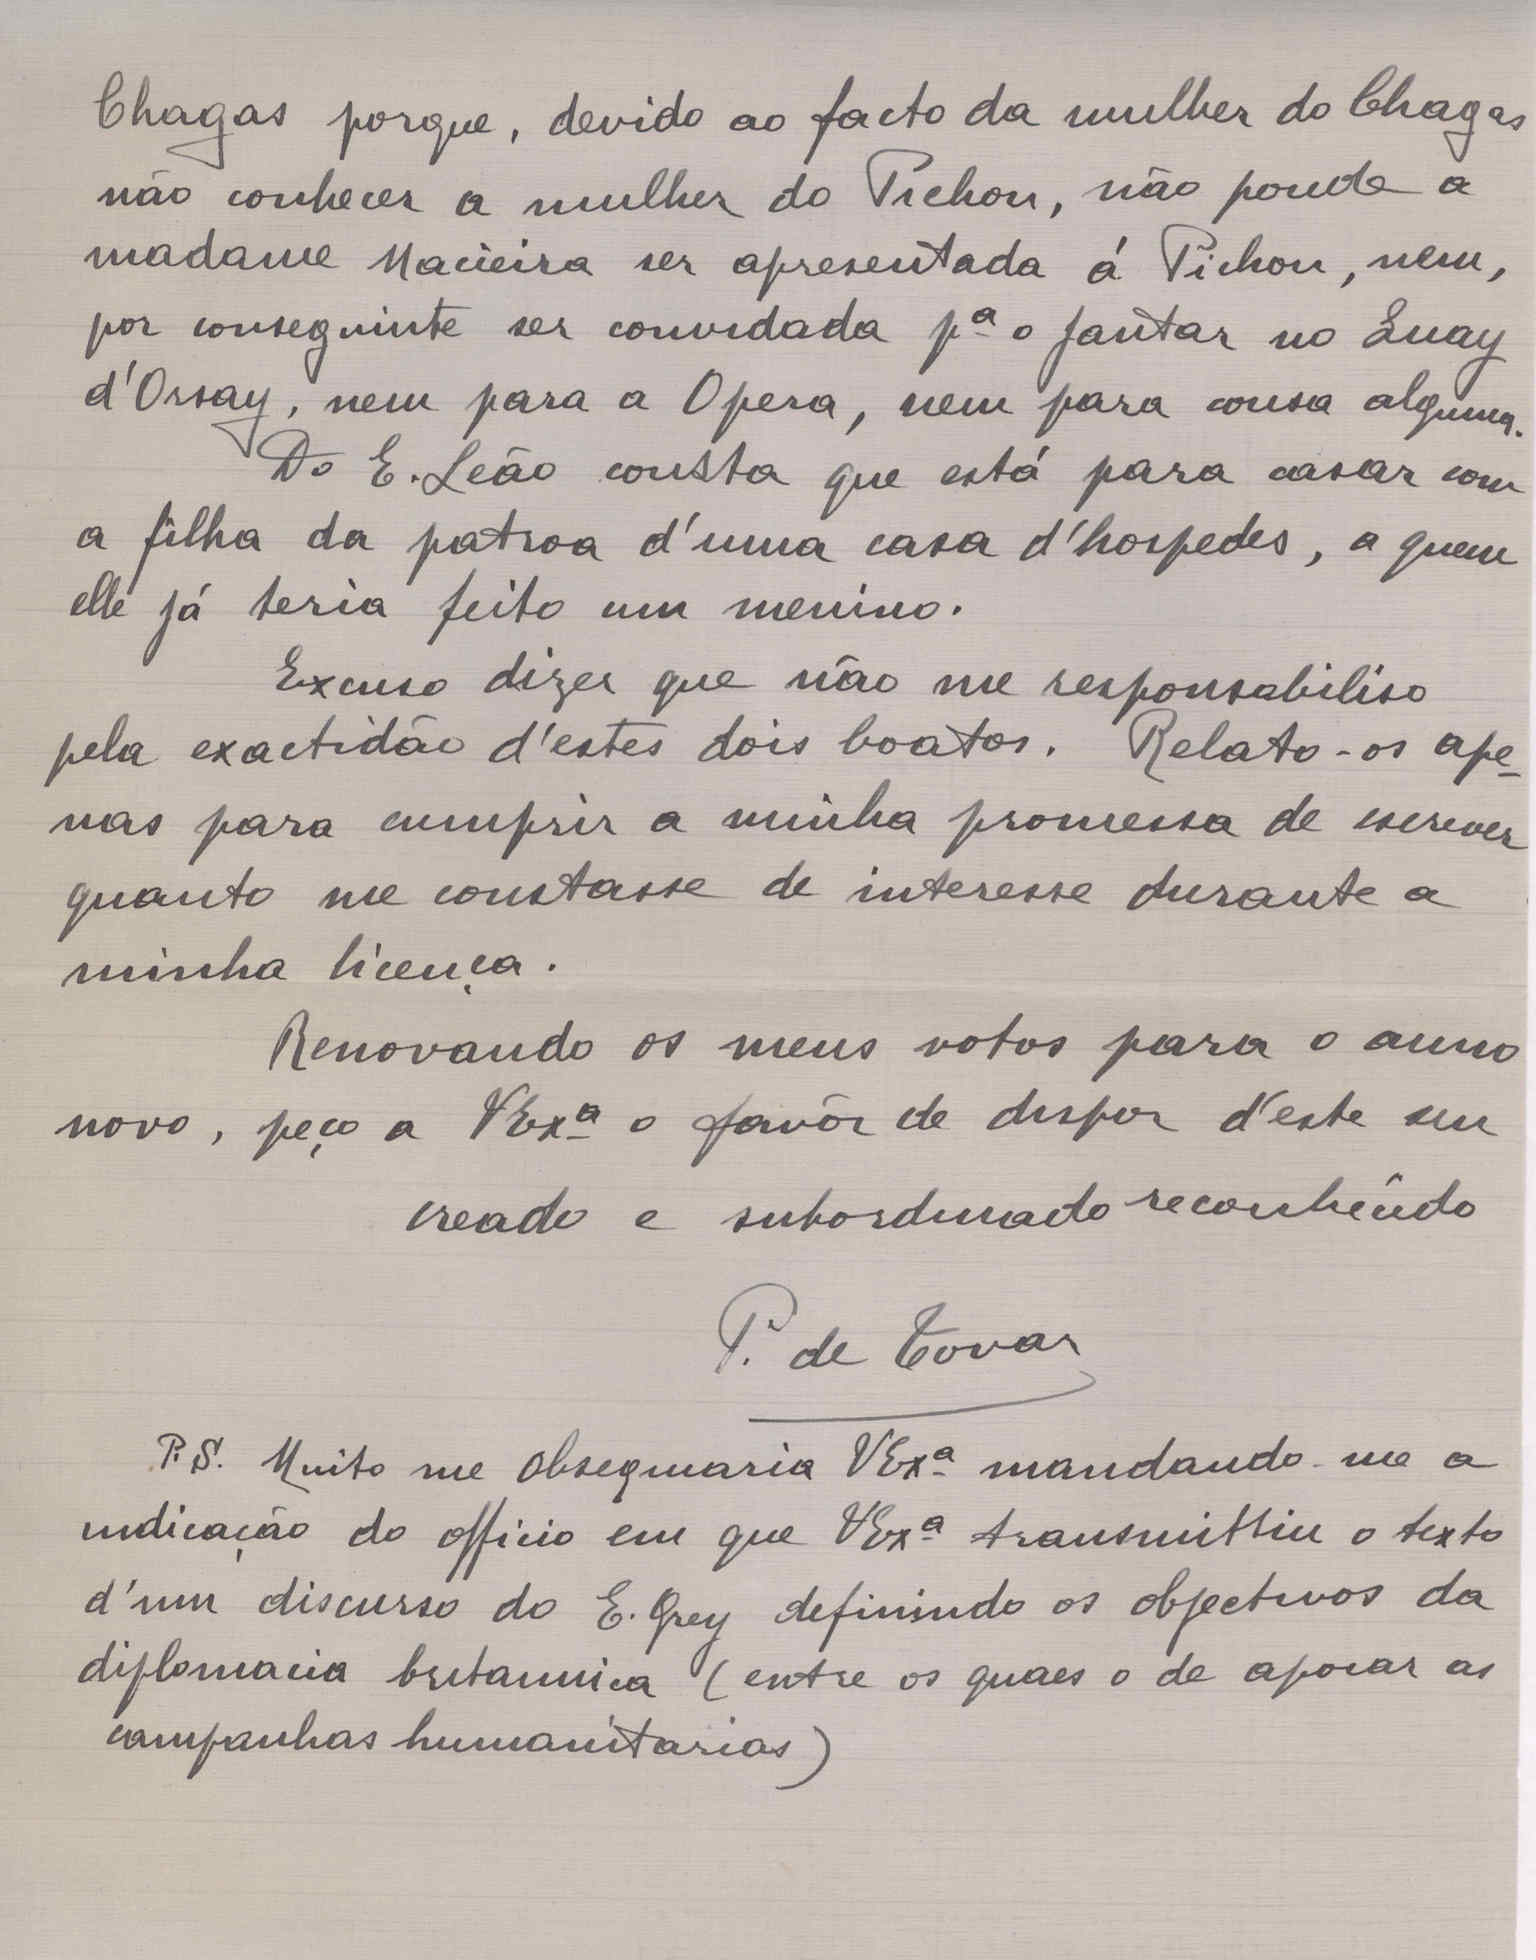 Chagas porque, devido ao facto da mulher do Chagas
não conhecer a mulher do Pichon, não poude a
madame Macieira ser apresentada á Pichon, nem,
por conseguinte ser convidada pª o jantar no Quay
d'Orsay, nem para a Opera, nem para cousa alguma.
Do E. Leão consta que está para casar com
a filha da patroa d'uma casa d'hospedes, a quem
elle já teria feito um menino.
Excuso dizer que não me responsabiliso
pela exactidão d'estes dois boatos. Relato-os ape-
nas para cumprir a minha promessa de escrever
quanto me constasse de interesse durante a
minha licença.
Renovando os meus votos para o anno
novo, peço a VExª o favôr de dispor d'este seu
creado e subordinado reconhecido
P. de Tovar
P.S. Muito me obsequiaria VExª mandando-me a
indicação do officio em que VExª transmittiu o texto
d'um discurso do E. Grey definindo os objectivos da
diplomacia britannica (entre os quaes o de apoiar as
campanhas humanitarias)